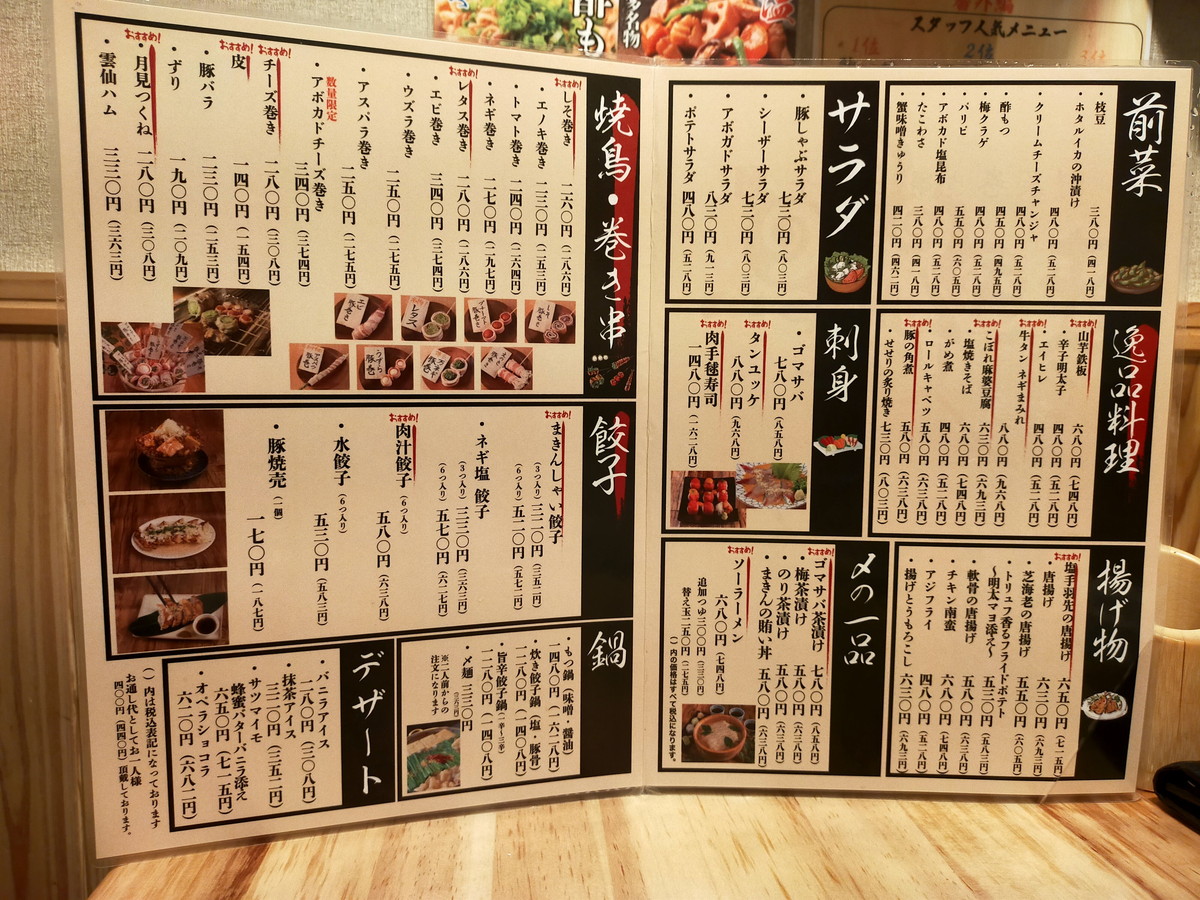 酢も
多名物
番外編
スタッフ人気メニュー
1位
2位
3位
前菜
・枝豆 三八〇円(四一八円)
・ホタルイカの沖漬け 四八〇円(五二八円)
・クリームチーズチャンジャ 四八〇円(五二八円)
・酢もつ 四五〇円(四九五円)
・梅クラゲ 四八〇円(五二八円)
・バリピ 五五〇円(六〇五円)
・アボカド塩昆布 四八〇円(五二八円)
・たこわさ 三八〇円(四一八円)
・蟹味噌きゅうり 四二〇円(四六二円)
サラダ
・豚しゃぶサラダ 七三〇円(八〇三円)
・シーザーサラダ 七三〇円(八〇三円)
・アボガドサラダ 八三〇円(九一三円)
・ポテトサラダ 四八〇円(五二八円)
逸品料理
おすすめ!
・山芋鉄板 六八〇円(七四八円)
・辛子明太子 四八〇円(五二八円)
・エイヒレ 四八〇円(五二八円)
おすすめ!
・牛タン ネギまみれ 八八〇円(九六八円)
おすすめ!
・こぼれ麻婆豆腐 六三〇円(六九三円)
・塩焼きそば 六八〇円(七四八円)
・がめ煮 四八〇円(五二八円)
・ロールキャベツ 五八〇円(六三八円)
おすすめ!
・豚の角煮 五八〇円(六三八円)
・せせりの炙り焼き 七三〇円(八〇三円)
刺身
・ゴマサバ 七八〇円(八五八円)
おすすめ!
・タンユッケ 八八〇円(九六八円)
おすすめ!
・肉手毬寿司 一四八〇円(一六二八円)
揚げ物
おすすめ!
・塩手羽先の唐揚げ 六五〇円(七一五円)
・唐揚げ 六三〇円(六九三円)
・芝海老の唐揚げ 五五〇円(六〇五円)
・トリュフ香るフライドポテト
〜明太マヨ添え〜 五三〇円(五八三円)
・軟骨の唐揚げ 五八〇円(六三八円)
・チキン南蛮 六八〇円(七四八円)
・アジフライ 四八〇円(五二八円)
・揚げとうもろこし 六三〇円(六九三円)
〆の一品
おすすめ!
・ゴマサバ茶漬け 七八〇円(八五八円)
・梅茶漬け 五八〇円(六三八円)
・のり茶漬け 五八〇円(六三八円)
・まきんの賄い丼 五八〇円(六三八円)
おすすめ!
・ソーラーメン 六八〇円(七四八円)
追加つゆ三〇〇円(三三〇円)
替え玉二五〇円(二七五円)
( )内の価格はすべて税込になります。
焼鳥・巻き串
おすすめ!
・しそ巻き 二六〇円(二八六円)
・エノキ巻き 二三〇円(二五三円)
・トマト巻き 二四〇円(二六四円)
・ネギ巻き 二七〇円(二九七円)
おすすめ!
・レタス巻き 二八〇円(二八六円)
・エビ巻き 三四〇円(三七四円)
・ウズラ巻き 二五〇円(二七五円)
・アスパラ巻き 二五〇円(二七五円)
数量限定
・アボカドチーズ巻き 三四〇円(三七四円)
おすすめ!
・チーズ巻き 二八〇円(三〇八円)
おすすめ!
・皮 一四〇円(一五四円)
・豚バラ 二三〇円(二五三円)
・ずり 一九〇円(二〇九円)
おすすめ!
・月見つくね 二八〇円(三〇八円)
・雲仙ハム 三三〇円(三六三円)
餃子
おすすめ!
・まきんしゃい餃子
(3つ入り) 三二〇円(三五二円)
(6つ入り) 五二〇円(五七二円)
・ネギ塩 餃子
(3つ入り) 三三〇円(三六三円)
(6つ入り) 五七〇円(六二七円)
おすすめ!
・肉汁餃子(6つ入り) 五八〇円(六三八円)
・水餃子(6つ入り) 五三〇円(五八三円)
・豚焼売(一個) 一七〇円(一八七円)
鍋
・もつ鍋(味噌・醤油)
一四八〇円(一六二八円)
・炊き餃子鍋(塩・豚骨)
一二八〇円(一四〇八円)
・旨辛餃子鍋(一辛〜三辛)
一二八〇円(一四〇八円)
・〆麺 三三〇円
※二人前からの
注文になります
デザート
・バニラアイス
二八〇円(三〇八円)
・抹茶アイス
三二〇円(三五二円)
・サツマイモ
蜂蜜バターバニラ添え
六五〇円(七一五円)
・オペラショコラ
六二〇円(六八二円)
( )内は税込表記になっております
お通し代としてお一人様
四〇〇円(四四〇円)頂戴しております。